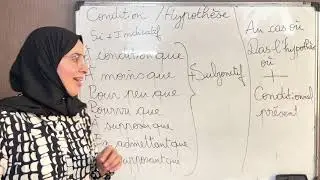 Condition / Hypothèse
Si + Indicatif
condition que
moins que
Pour peu que
Pourvu que
À supposer que
En admettant que
supposant que
+ Subjonctif
Au cas où
Dans l'hypothèse
où
+
Conditionnel
présent